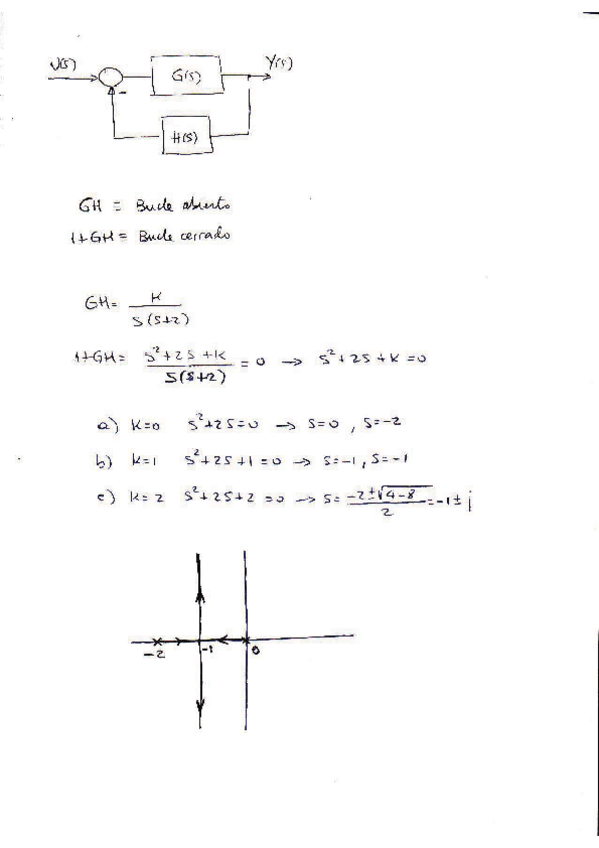 U(s) Y(s)
G(s)
-
H(s)
GH = Bucle abierto
1+GH = Bucle cerrado
GH = K / S(S+2)
1+GH = S²+2S+K / S(S+2) = 0 → S²+2S+K=0
a) K=0 S²+2S=0 → S=0, S=-2
b) K=1 S²+2S+1=0 → S=-1, S=-1
c) K=2 S²+2S+2=0 → S= -2±√4-8 / 2 = -1±j
-2 -1 0